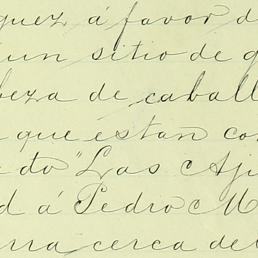 guez á favor d
un sitio de g
beza de caball
que estan co
do "Las Aji
d á Pedro M
rra cerca de